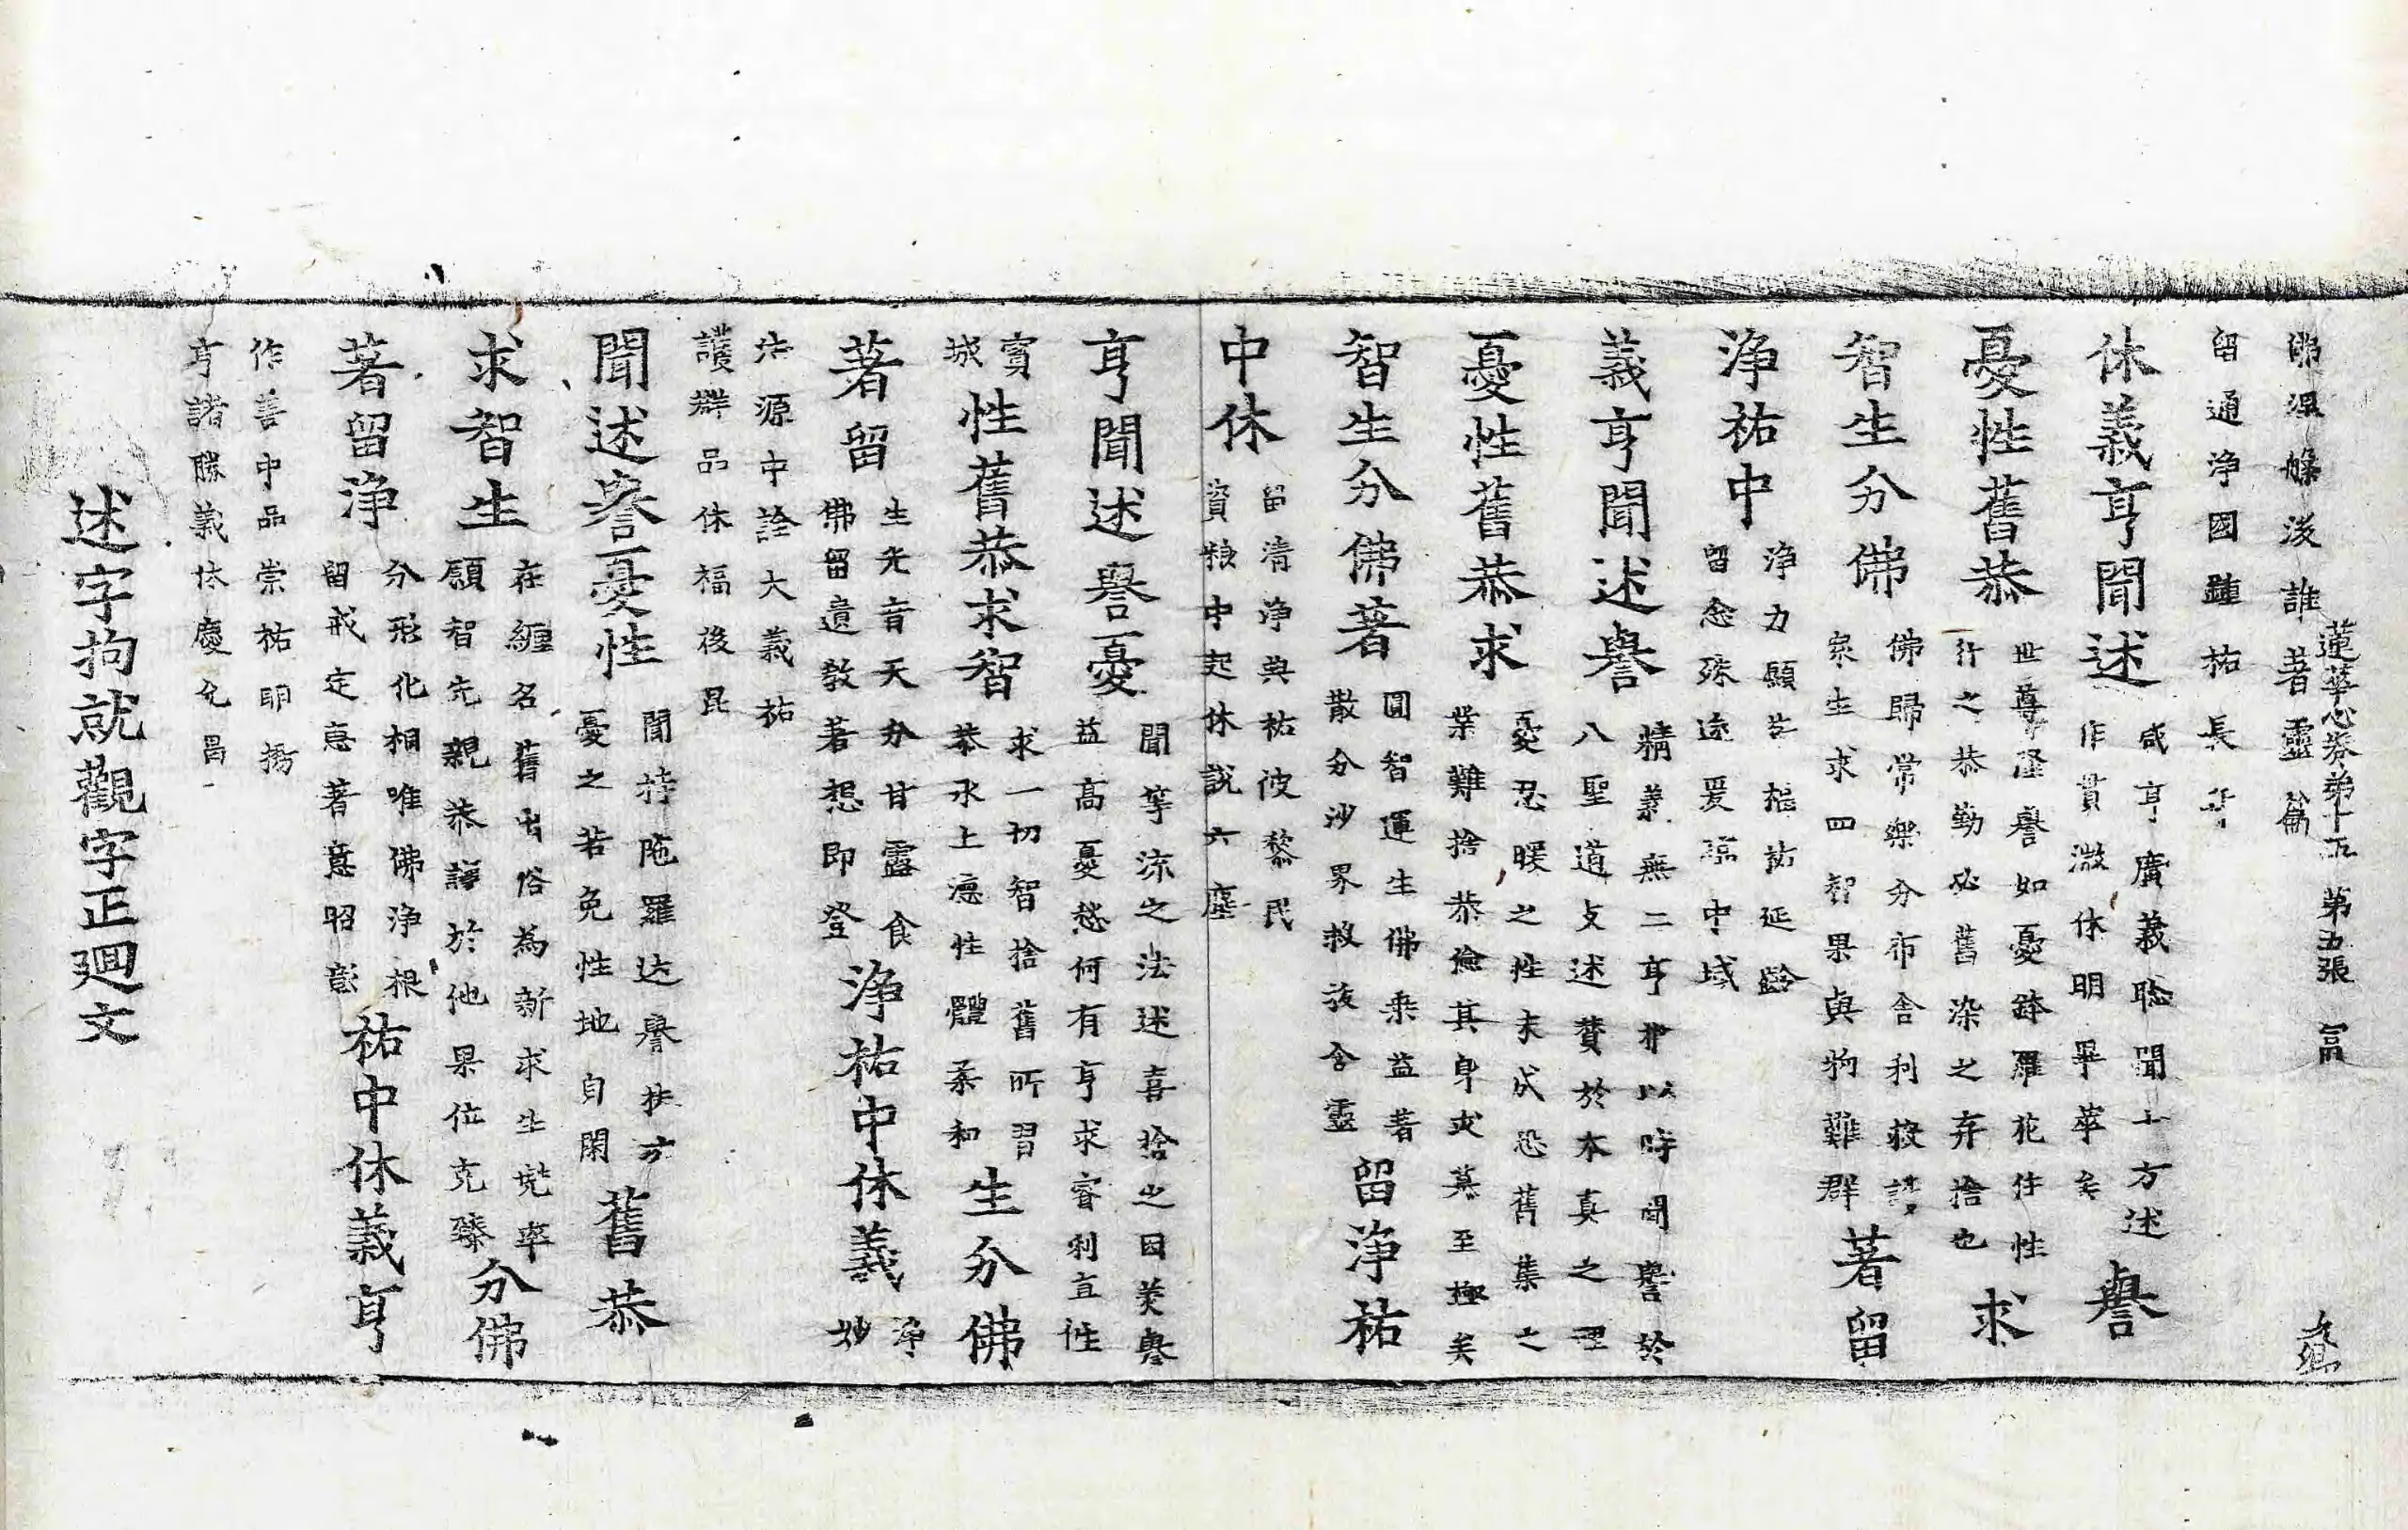 蓮華心卷第十五 第五張 冨
佛涅槃後誰著靈篇
留通淨因鍾祐長
休義亨聞述 咸亨廣義聆聞十方述
作貫微休明畢萃矣 譽
憂性舊恭 世尊隆譽如憂鉢羅花任性
行之恭勤必舊染之弃捨也 求
智生分佛 佛歸常樂分布舍利救諸
衆生求四智果與物難群 著留
淨祐中 淨力顯 祐延齡
留念殊途爰 中域
義亨聞述譽 精義無二亨 以時聞譽於
八聖道 述贊於本真之理
憂性舊恭求 憂忍暖之性未成恐舊集之
業難捨恭儉其身求莫至極矣
智生分佛著 圓智運生佛乘益著
散分沙界救 含靈 留淨祐
中休 留清淨與祐彼黎民
資糧中起休說六塵
亨聞述譽憂 聞等流之法述喜捨之因美譽
益高憂愁何有亨求睿利直性
寶
城 性舊恭求智 求一切智捨舊所習
恭承上德性體柔和 生分佛
著留 生先音天分甘露食
佛留遺教著想即登 淨祐中休義 淨
妙
法源中詮大義祐
護群品休福後昆
聞述譽憂性 聞持陁羅达譽 方
憂之若免性地自閑 舊恭
求智生 在纏名舊出俗為新求生兜率
願智先親恭諍於他果位克臻 分佛
著留淨 分形化相唯佛淨根
留戒定惠著意昭彰 祐中休義亨
作善中品崇祐明揚
亨諸勝義休慶允昌
述字拘就觀字正迴文